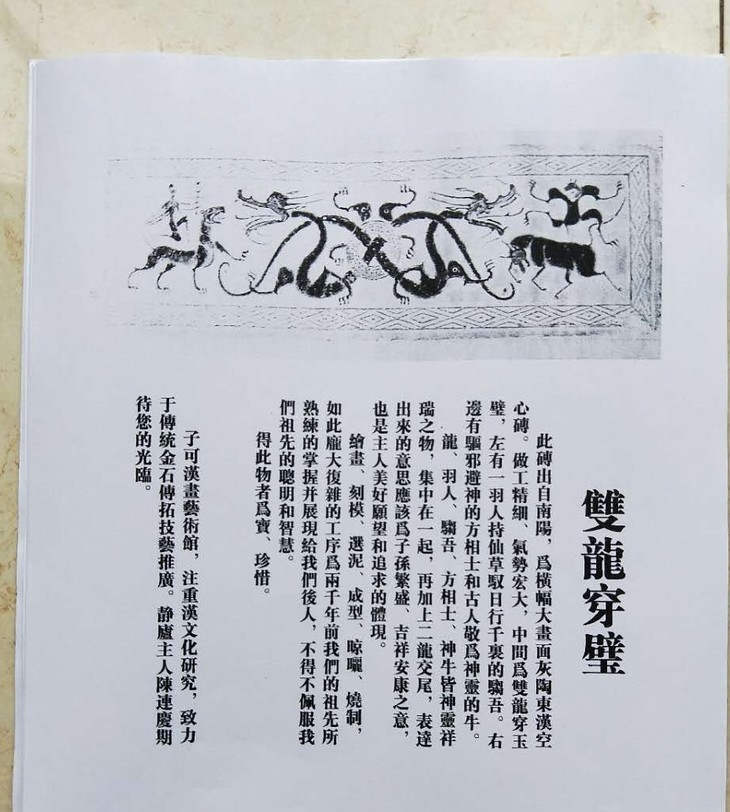 雙龍穿璧
此磚出自南陽，爲橫幅大畫面灰陶東漢空
心磚。做工精細、氣勢宏大，中間爲雙龍穿玉
璧，左有一羽人持仙草馭日行千裏的騶吾。右
邊有驅邪避神的方相士和古人敬爲神靈的牛。
龍、羽人、騶吾、方相士、神牛皆神靈祥
瑞之物，集中在一起，再加上二龍交尾，表達
出來的意思應該爲子孫繁盛、吉祥安康之意，
也是主人美好願望和追求的體現。
繪畫、刻模、選泥、成型、晾曬、燒制，
如此龐大復雜的工序爲兩千年前我們的祖先所
熟練的掌握并展現給我們後人，不得不佩服我
們祖先的聰明和智慧。
得此物者爲寶、珍惜。
子可漢畫藝術館，注重漢文化研究，致力
于傳統金石傳拓技藝推廣。静廬主人陳連慶期
待您的光臨。